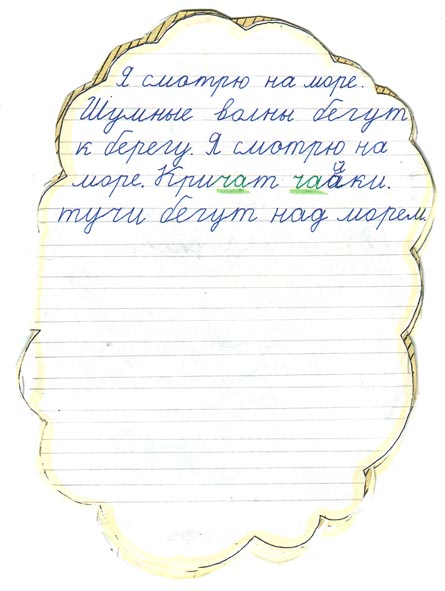 Я смотрю на море.
Шумные волны бегут
к берегу. Я смотрю на
море. Кричат чайки.
тучи бегут над морем.